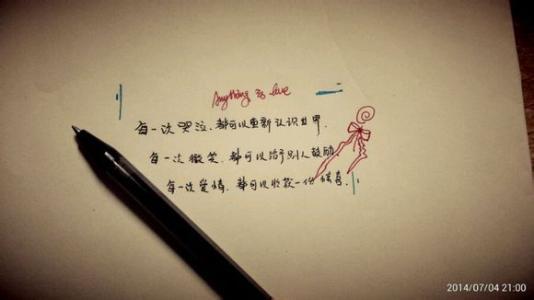 Anything is love
每一次哭泣，都可以重新认识世界.
每一次微笑，都可以给予别人鼓励
每一次爱情，都可以收获一份惊喜.
2014/07/04 21:00